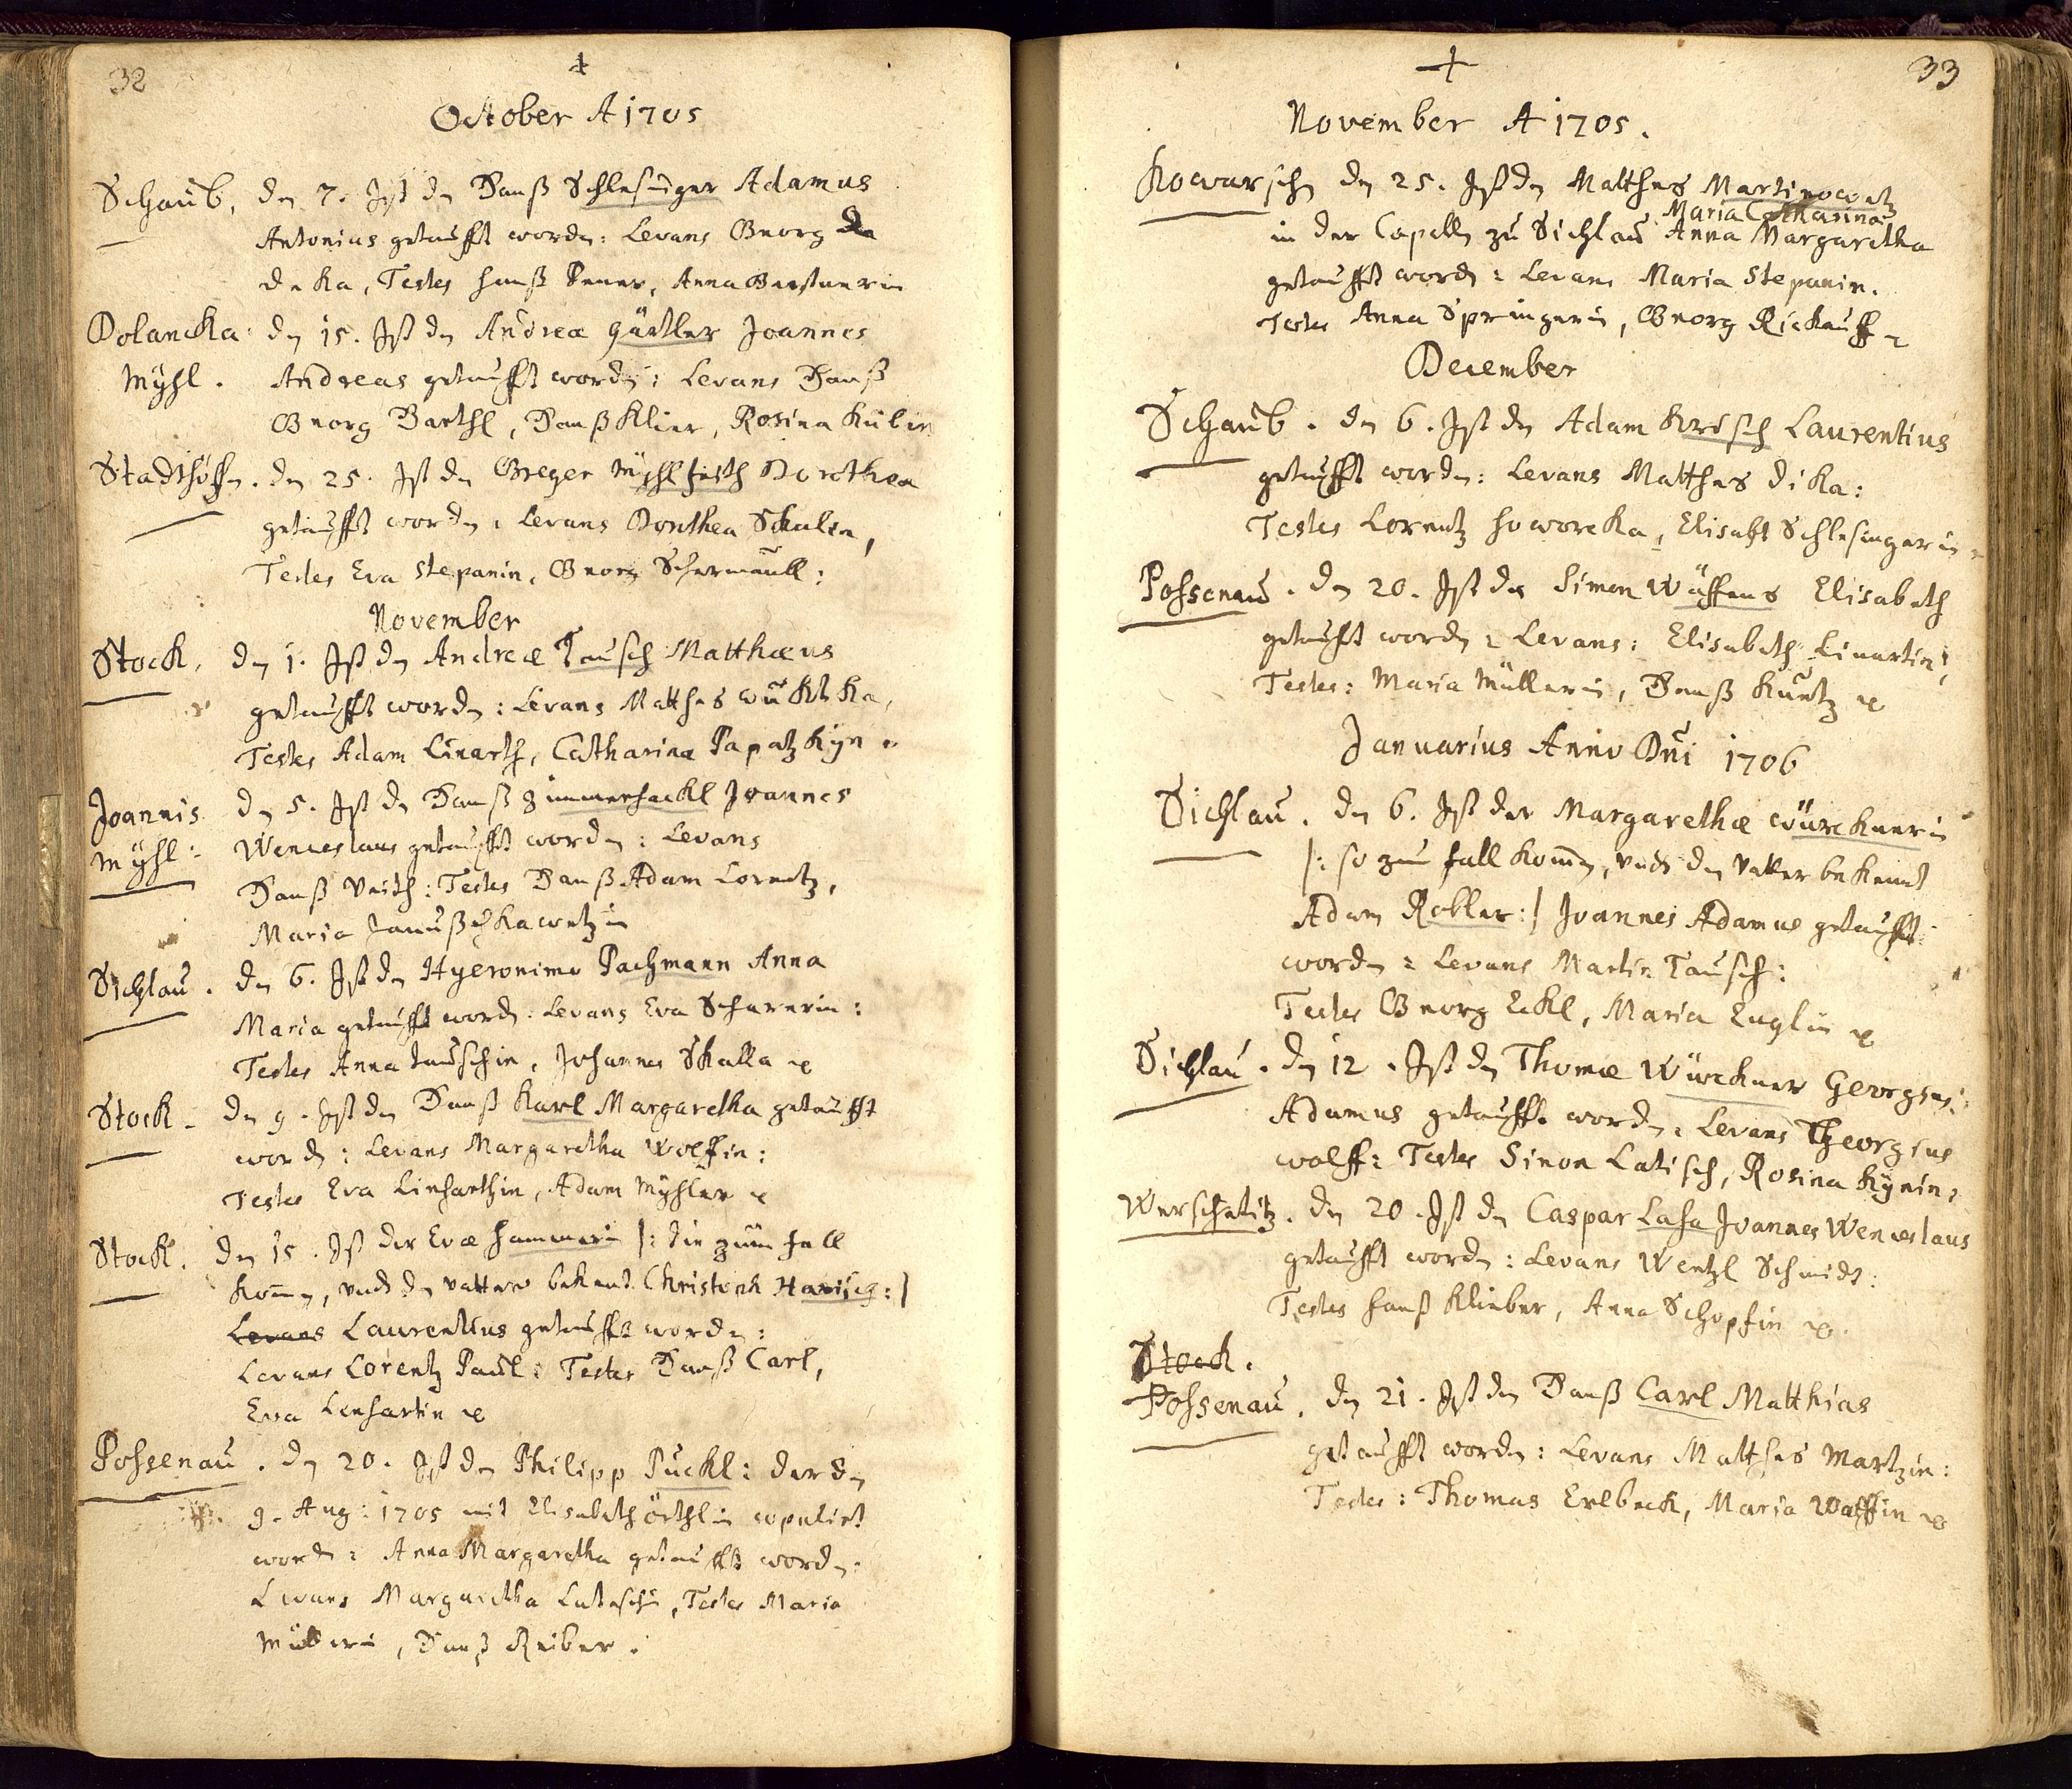 32
October A 1705
Schaub, den 7. Ist den Hanß Schlesinger Adamus
Antonius getaufft worden: Levans Georg
deka, Testes Hanß, Anna
Dolancka den 15. Ist den Andreæ Gürtler Joannes
Mÿhl. Andreas getaufft worden: Levans Hanß
Georg Barthl, Hanß Klier, Rosina
Stadthöffen. den 25. Ist den Greger Dorothea
getaufft worden: Levans Dorothea Skalin,
Testes Eva Stepanin, Georg
November
Stock, den 1. Ist den Andreæ Tausch Matthæus
getaufft worden: Levans Matthes
Testes Adam Linarth, Catharina
Joannis den 5. Ist den Hanß Zimmerhackl Joannes
Mÿhl: Wenceslaus getaufft worden: Levans
Hanß Veith: Testes Hanß Adam Lorentz,
Maria
Sichlau. den 6. Ist den Hyeronimo Pachmann Anna
Maria getaufft worden: Levans Eva Scharerin:
Testes Anna Tauschin, Johannes Skalla
Stock. den 9. Ist den Hanß Karl Margaretha getaufft
worden: Levans Margaretha Wolffin:
Testes Eva Linharthin, Adam Mÿhler
Stock. den 15. Ist der Evæ Hammerin |: die zum fall
kom̄en, undt den vatter bekent Christoph Harisch :|
Levans Laurentius getaufft worden:
Levans Lorentz Paul: Testes Hanß Carl,
Eva Lenhartin
Possenau. den 20. Ist den Philipp Puckl: der den
9. Aug: 1705 mit Elisabeth Örthlin copulirt
worden: Anna Margaretha getaufft worden:
Levans Margaretha, Testes Maria
Müllerin, Hanß Reiber.
33
November A 1705.
Kowarschen den 25. Ist den Matthes Martinowetz
Maria Catharina
in der Capelln zu Sichlau Anna Margaretha
getaufft worden: Levans Maria Stepanin.
Testes Anna Springerin, Georg Rickauff
December
Schaub. den 6. Ist den Adam Krisch Laurentius
getaufft worden: Levans Matthes dika:
Testes Lorentz Howorcka, Elisabt Schlesingerin
Possenau. den 20. Ist der Simon Elisabeth
getaufft worden: Levans: Elisabeth Linartin,
Testes: Maria Müllerin, Hanß Kuntz
Januarius Anno Dn̄i 1706
Sichlau. den 6. Ist der Margarethæ Würcknerin
|: so zum fall kom̄en, undt den vatter bekennt
Adam Kobler :| Joannes Adamus getaufft
worden: Levans Martin Tausch:
Testes Georg Eckl, Maria Englin
Sichlau. den 12. Ist den Thomæ Würckner Georgius
Adamus getaufft worden: Levans Georgius
Wolff: Testes Simon Latisch, Rosina
Werschetitz. den 20. Ist den Caspar Lasa Joannes Wenceslaus
getaufft worden: Levans Wentzl Schmidt:
Testes Hanß Klieber, Anna Schopfin
Stock.
Possenau. den 21. Ist den Hanß Carl Matthias
getaufft worden: Levans Matthes Martzin:
Testes: Thomas Erlbeck, Maria Wolffin